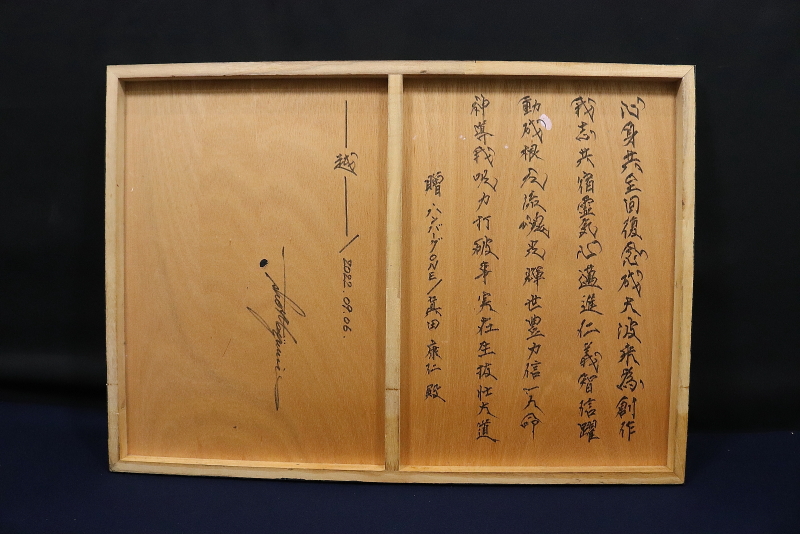 心身共全回復念成大波来為創作
我志共宿霊気心邁進仁義智信躍
動成根元流魂光輝世豊力信一人命
神尊我吸力打破車実在生抜壮大道
贈 ハンバーグONE/真田 康仁 殿
越 / 2022.09.06.